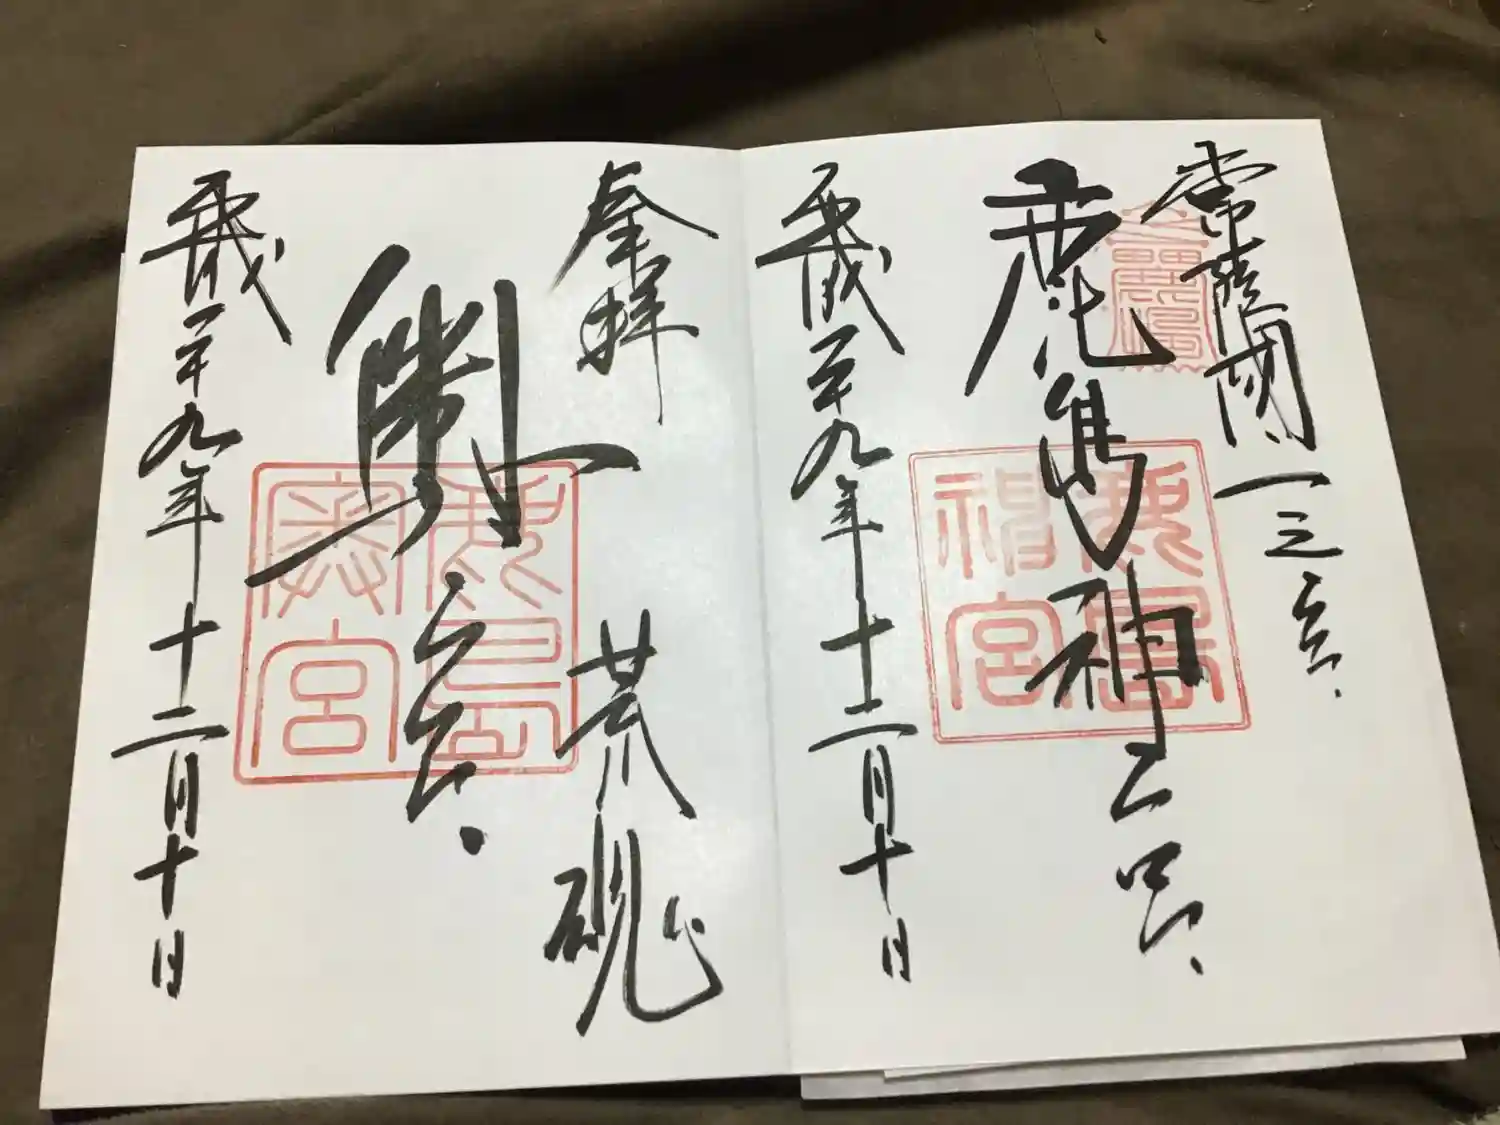 常陸國一之宮
鹿島神宮
平成二十九年十二月十日
奉拝 荒魂
奥宮
平成二十九年十二月十日
鹿島神宮
鹿島奥宮